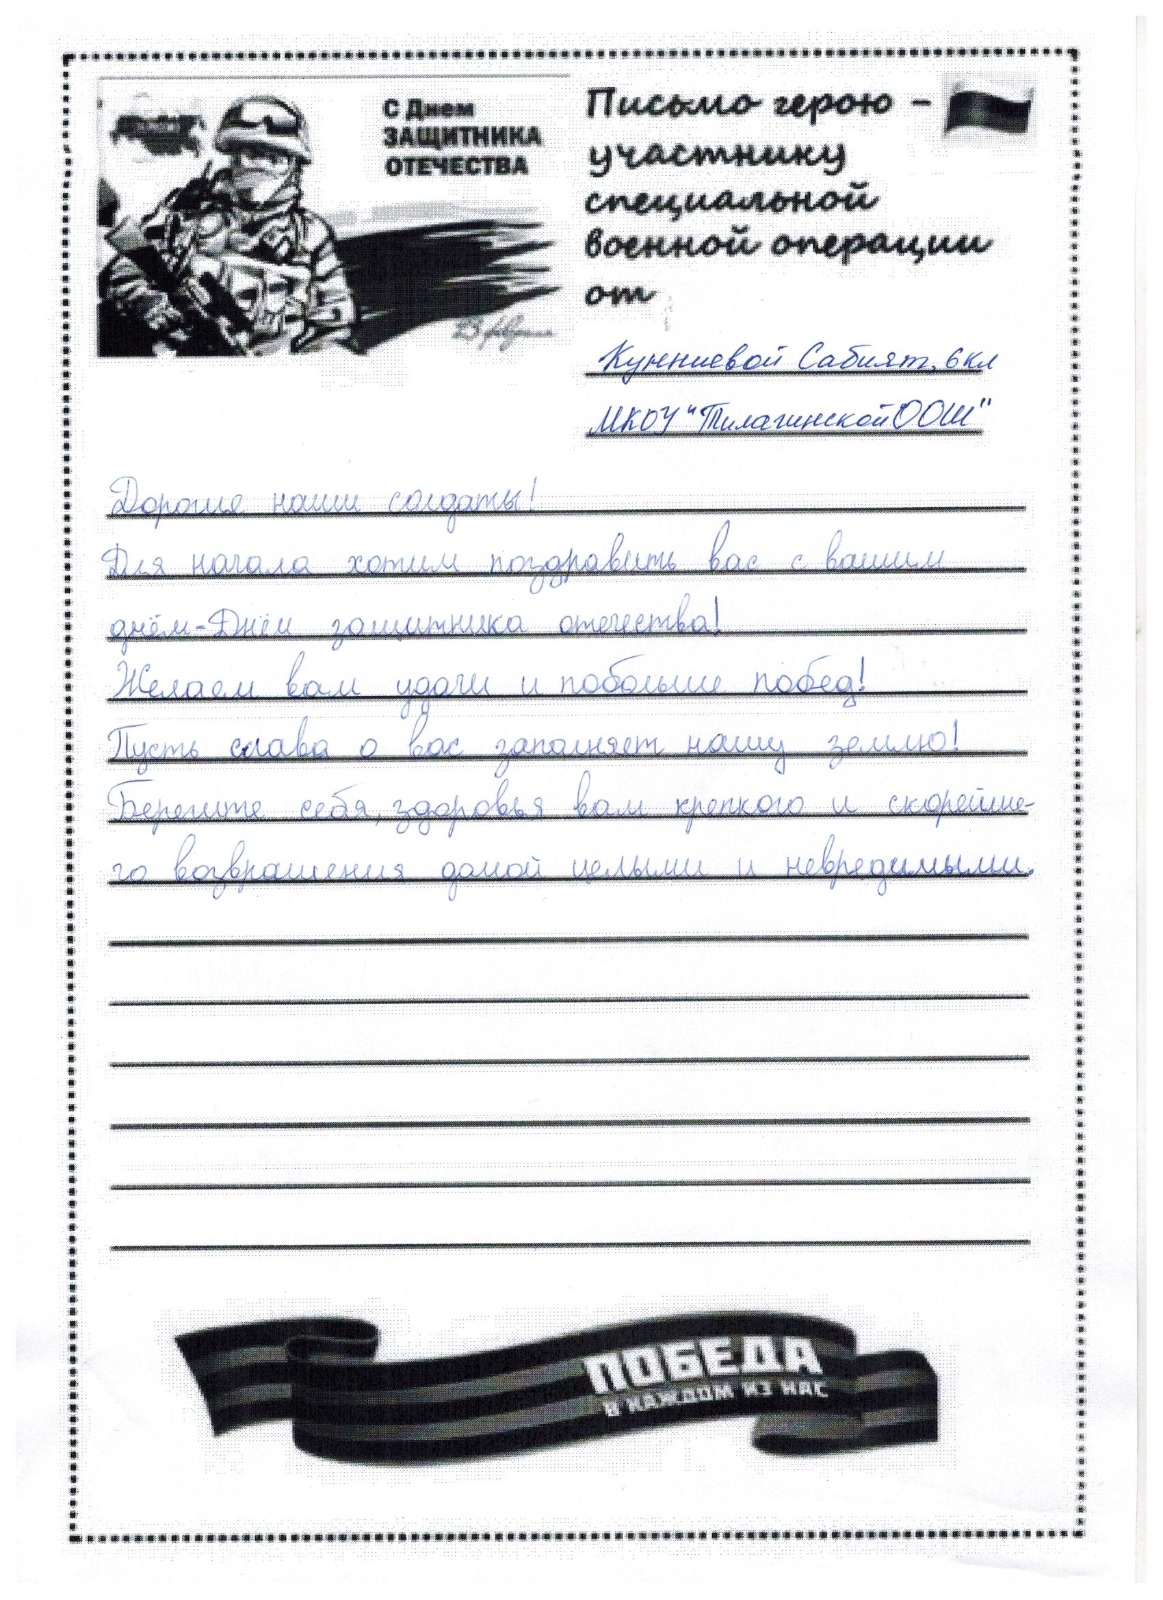 С Днем
ЗАЩИТНИКА
ОТЕЧЕСТВА
Письмо герою -
участнику
специальной
военной операции
от
Кунниевой Сабият, 6 кл
МКОУ "Тилагинской ООШ"
Дорогие наши солдаты!
Для начала хотим поздравить вас с вашим
днём-Днём защитника отечества!
Желаем вам удачи и побольше побед!
Пусть слава о вас заполняет нашу землю!
Берегите себя, здоровья вам крепкого и скорейше-
го возвращения домой целыми и невредимыми.
ПОБЕДА
В КАЖДОМ ИЗ НАС